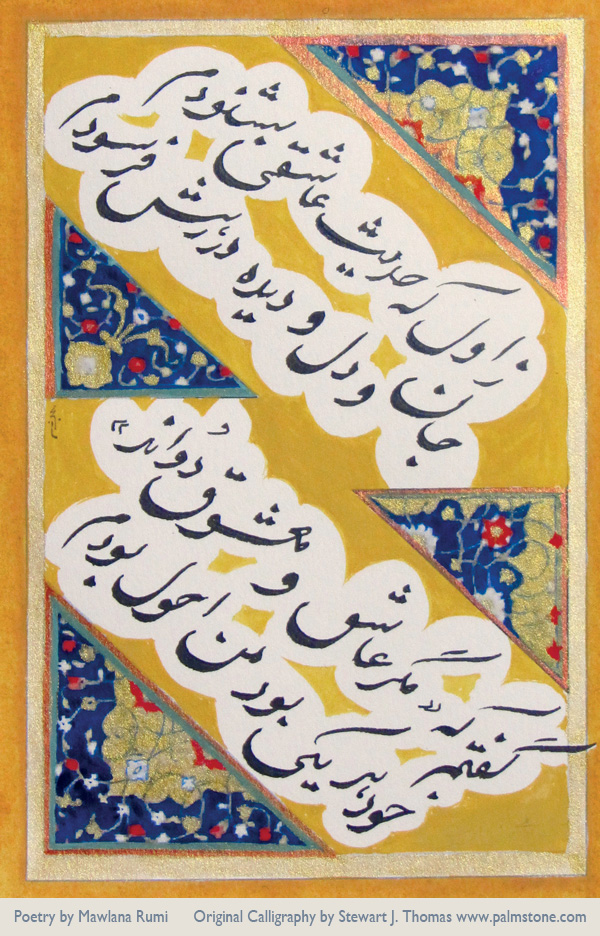 ز اول که حدیث عاشقی بشنودم
جان و دل و دیده در رهش فرسودم
گفتم که «مگر عاشق و معشوق دواند»
خود هر یکی بود من احول بودم
Poetry by Mawlana Rumi Original Calligraphy by Stewart J. Thomas www.palmstone.com